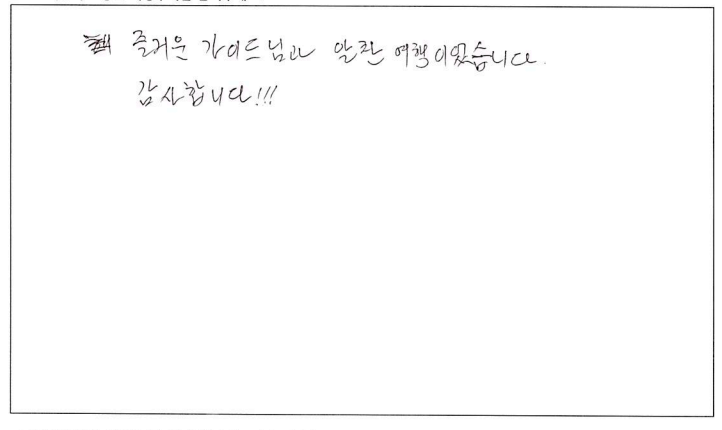 즐거운 가이드님과 알찬 여행이었습니다.
감사합니다!!!